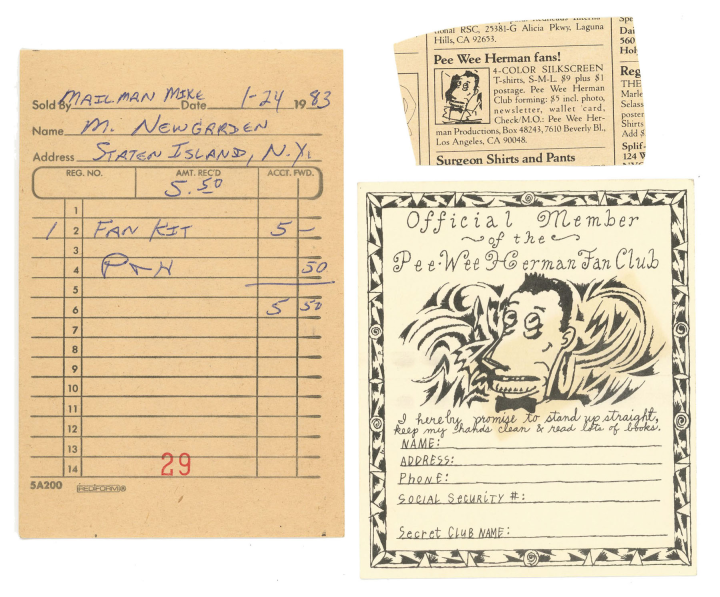 Sold By MAILMAN MIKE Date 1-24 1983
Name M. NEWGARDEN
Address STATEN ISLAND, N.Y.
REG. NO. AMT. REC'D ACCT. FWD.
5.50
1
1 2 FAN KIT 5 -
3
4 P+H 50
5
6 5 50
7
8
9
10
11
12
13
14
29
5A200 REDIFORM®
RSC, 25381-G Alicia Pkwy, Laguna
Hills, CA 92653.
Pee Wee Herman fans!
4-COLOR SILKSCREEN
T-shirts, S-M-L. $9 plus $1
postage. Pee Wee Herman
Club forming: $5 incl. photo,
newsletter, wallet card,
Check/M.O.: Pee Wee Her-
man Productions, Box 48243, 7610 Beverly Bl.,
Los Angeles, CA 90048.
Surgeon Shirts and Pants
560
Reg
THE
Marle
Selass
poster
Shirts
Add $
Split-
124 W
Official Member
of the
Pee-Wee Herman Fan Club
I hereby promise to stand up straight,
keep my hands clean & read lots of books.
NAME:
ADDRESS:
PHONE:
SOCIAL SECURITY #:
Secret CLUB NAME: